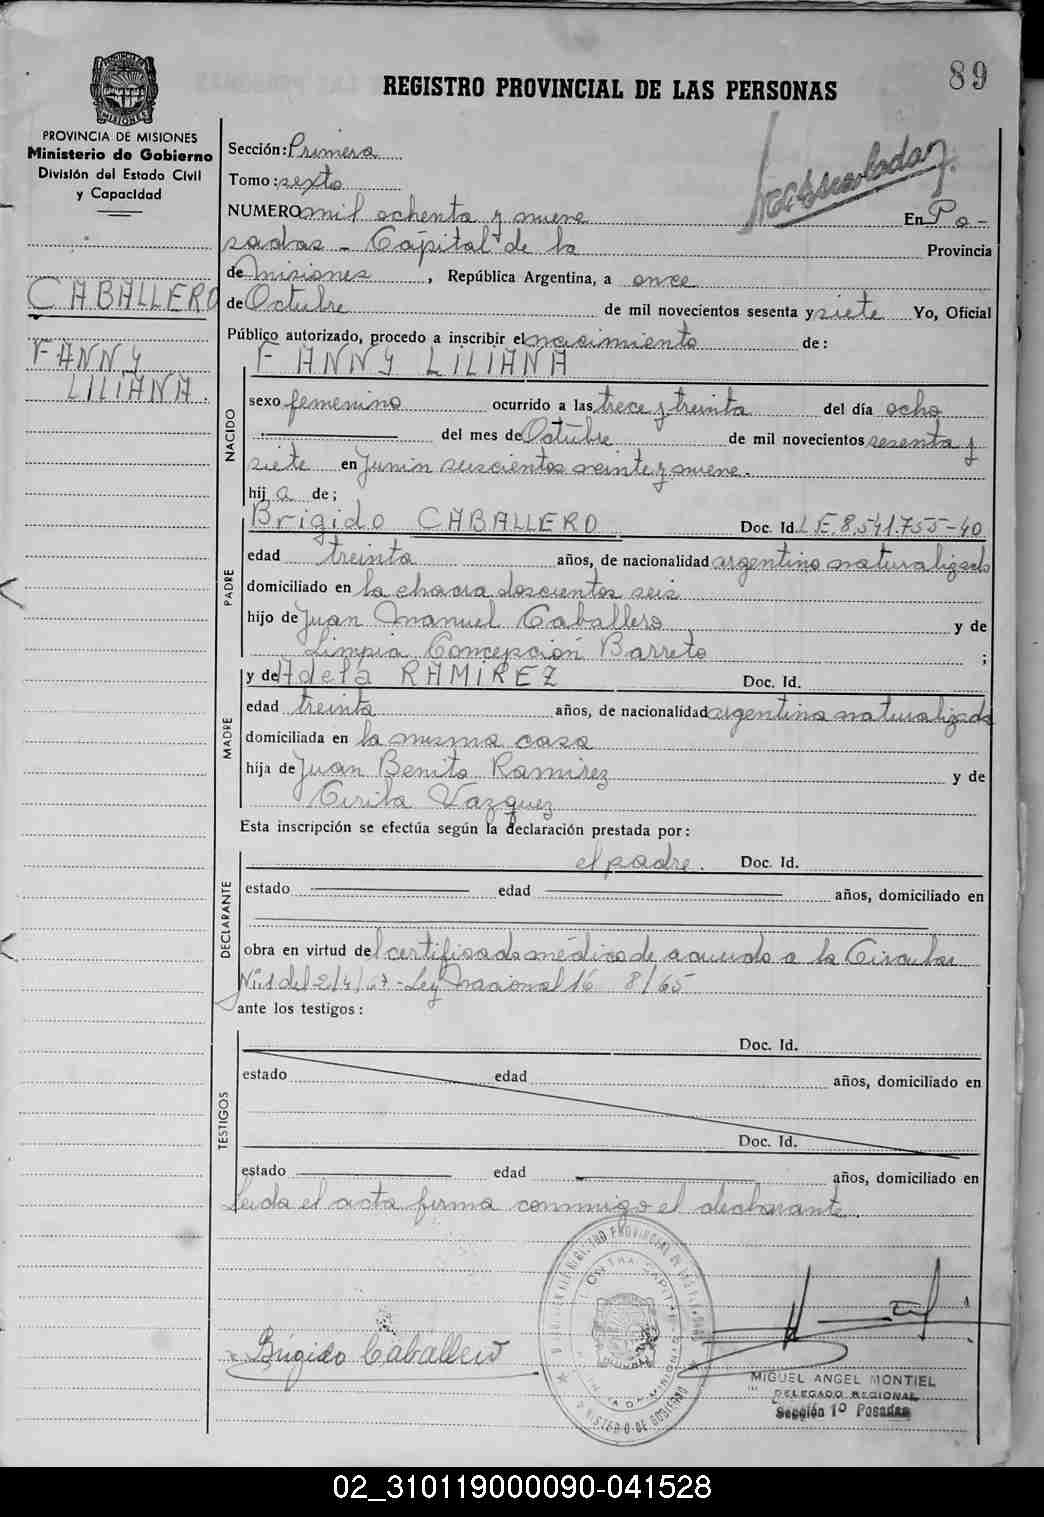 89
REGISTRO PROVINCIAL DE LAS PERSONAS
PROVINCIA DE MISIONES
Ministerio de Gobierno
División del Estado Civil
y Capacidad
CABALLERO
FANNY
LILIANA.
Sección: Primera
Tomo: sexto
NUMERO mil ochenta y nueve En Po-
sadas - Capital de la Provincia
de Misiones, República Argentina, a once
de Octubre de mil novecientos sesenta y siete Yo, Oficial
Público autorizado, procedo a inscribir el nacimiento de:
FANNY LILIANA
NACIDO
sexo femenino ocurrido a las trece y treinta del día ocho
del mes de Octubre de mil novecientos sesenta y
siete en Junin seiscientos veinte y nueve.
hija de;
PADRE
Brigido CABALLERO Doc. Id. L.E. 8.541.755-40
edad treinta años, de nacionalidad argentino naturalizado
domiciliado en la chacra doscientos seis
hijo de Juan Manuel Caballero y de
Limpia Concepción Barreto ;
MADRE
y de Adela RAMIREZ Doc. Id.
edad treinta años, de nacionalidad argentina naturalizada
domiciliada en la misma casa
hija de Juan Benito Ramirez y de
Cirila Vazquez
Esta inscripción se efectúa según la declaración prestada por:
DECLARANTE
el padre. Doc. Id.
estado edad años, domiciliado en
obra en virtud del certificado médico de acuerdo a la Circular
Nº1 del 2/4/67 - Ley Nacional 16 8/65
ante los testigos:
TESTIGOS
Doc. Id.
estado edad años, domiciliado en
Doc. Id.
estado edad años, domiciliado en
Leida el acta firma conmigo el declarante.
Brigido Caballero
MIGUEL ANGEL MONTIEL
DELEGADO REGIONAL
Sección 1º Posadas
02_310119000090-041528